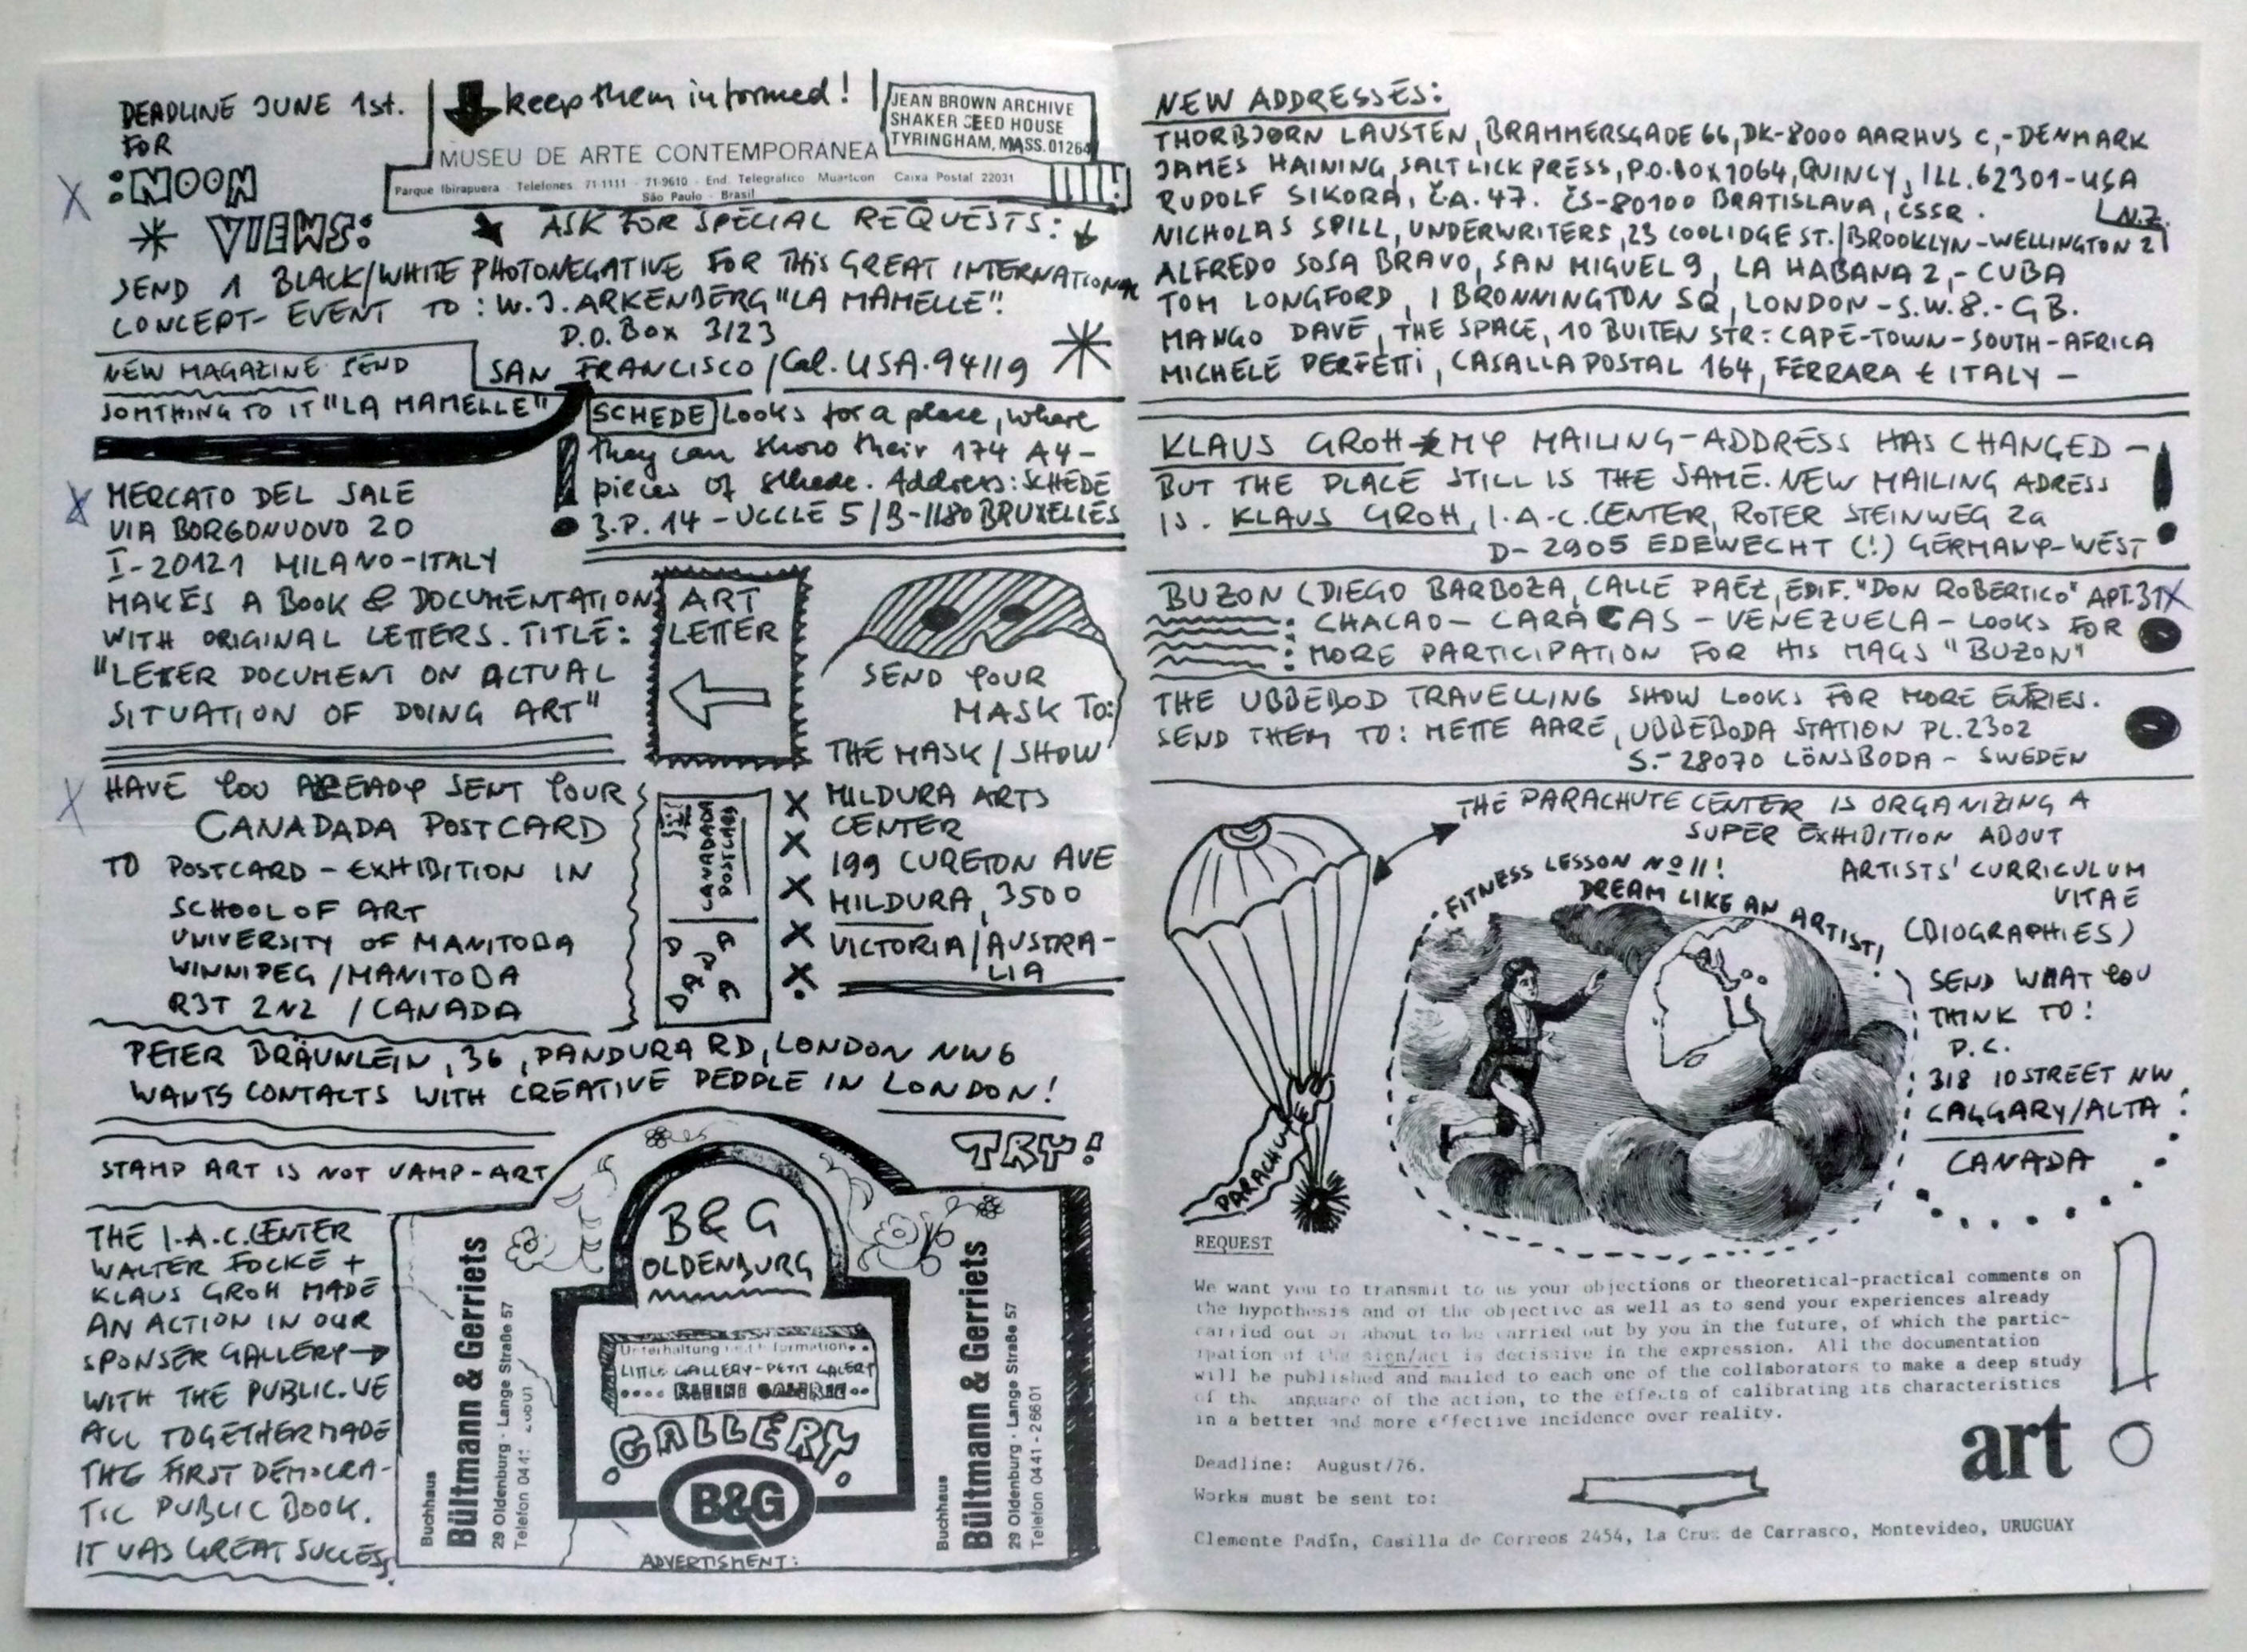 DEADLINE JUNE 1st.
FOR
:NOON
* VIEWS:
keep them informed!
JEAN BROWN ARCHIVE
SHAKER SEED HOUSE
TYRINGHAM, MASS. 01264
MUSEU DE ARTE CONTEMPORÁNEA
Parque Ibirapuera · Telefones 71-1111 · 71-9610 · End. Telegráfico Muartcon Caixa Postal 22031
São Paulo · Brasil
ASK FOR SPECIAL REQUESTS:
SEND 1 BLACK/WHITE PHOTONEGATIVE FOR THIS GREAT INTERNATIONAL
CONCEPT- EVENT TO: W.J. ARKENBERG "LA MAMELLE".
P.O. Box 3123
SAN FRANCISCO / Cal. USA. 94119
NEW MAGAZINE SEND
SOMTHING TO IT "LA MAMELLE"
SCHEDE Looks for a place, where
they can show their 174 A4-
pieces of schede. Address: SCHEDE
B.P. 14 - UCCLE 5 / B-1180 BRUXELLES
X MERCATO DEL SALE
VIA BORGONUOVO 20
I-20121 MILANO-ITALY
MAKES A BOOK & DOCUMENTATION
WITH ORIGINAL LETTERS. TITLE:
"LETTER DOCUMENT ON ACTUAL
SITUATION OF DOING ART"
ART
LETTER
SEND YOUR
MASK TO:
THE MASK / SHOW
MILDURA ARTS
CENTER
199 CURETON AVE
MILDURA, 3500
VICTORIA / AUSTRA-
LIA
X HAVE YOU AREADY SENT YOUR
CANADADA POSTCARD
TO POSTCARD - EXHIBITION IN
SCHOOL OF ART
UNIVERSITY OF MANITOBA
WINNIPEG / MANITOBA
R3T 2N2 / CANADA
CANADADA
POSTCARD
DADA
DADA
PETER BRÄUNLEIN, 36, PANDURA RD, LONDON NW6
WANTS CONTACTS WITH CREATIVE PEOPLE IN LONDON!
TRY!
STAMP ART IS NOT VAMP-ART
THE I.A.C. CENTER
WALTER FOCKE +
KLAUS GROH MADE
AN ACTION IN OUR
SPONSER GALLERY →
WITH THE PUBLIC. WE
ALL TOGETHER MADE
THE FIRST DEMOCRA-
TIC PUBLIC BOOK.
IT WAS GREAT SUCCES.
Buchhaus
Bültmann & Gerriets
29 Oldenburg · Lange Straße 57
Telefon 0441
B & G
OLDENBURG
Unterhaltung und Information
LITTLE GALLERY - PETIT GALERY
KLEINE GALERIE
GALLERY
B&G
ADVERTISMENT:
Buchhaus
Bültmann & Gerriets
29 Oldenburg · Lange Straße 57
Telefon 0441 - 26601
NEW ADDRESSES:
THORBJØRN LAUSTEN, BRAMMERSGADE 66, DK-8000 AARHUS C,- DENMARK
JAMES HAINING, SALT LICK PRESS, P.O.BOX 1064, QUINCY, ILL. 62301-USA
RUDOLF SIKORA, ČA. 47. ČS-80100 BRATISLAVA, ČSSR.
NICHOLAS SPILL, UNDERWRITERS, 23 COOLIDGE ST. / BROOKLYN-WELLINGTON 2 N.Z.
ALFREDO SOSA BRAVO, SAN MIGUEL 9, LA HABANA 2,- CUBA
TOM LONGFORD, 1 BRONNINGTON SQ, LONDON - S.W.8.- GB.
MANGO DAVE, THE SPACE, 10 BUITEN STR: CAPE-TOWN-SOUTH-AFRICA
MICHELE PERFETTI, CASALLA POSTAL 164, FERRARA € ITALY -
KLAUS GROH MY MAILING-ADDRESS HAS CHANGED -
BUT THE PLACE STILL IS THE SAME. NEW MAILING ADRESS
IS. KLAUS GROH, I.A.C. CENTER, ROTER STEINWEG 2a
D- 2905 EDEWECHT (!) GERMANY-WEST
BUZON (DIEGO BARBOZA, CALLE PAEZ, EDIF. "DON ROBERTICO" APT. 31X
CHACAO - CARACAS - VENEZUELA - LOOKS FOR
MORE PARTICIPATION FOR HIS MAGS "BUZON"
THE UBBEBOD TRAVELLING SHOW LOOKS FOR MORE ENTRIES.
SEND THEM TO: METTE AARE, UBBEBODA STATION PL. 2302
S.- 28070 LÖNSBODA - SWEDEN
THE PARACHUTE CENTER IS ORGANIZING A
SUPER EXHIBITION ABOUT
ARTISTS' CURRICULUM
VITAE
(BIOGRAPHIES)
SEND WHAT YOU
THINK TO:
P.C.
318 10 STREET NW
CALGARY/ALTA
CANADA
FITNESS LESSON Nº 11!
DREAM LIKE AN ARTIST!
PARACHUTE
REQUEST
We want you to transmit to us your objections or theoretical-practical comments on
the hypothesis and of the objective as well as to send your experiences already
carried out or about to be carried out by you in the future, of which the partic-
ipation of the sign/act is decissive in the expression. All the documentation
will be published and mailed to each one of the collaborators to make a deep study
of the anguage of the action, to the effects of calibrating its characteristics
in a better and more effective incidence over reality.
art
Deadline: August/76.
Works must be sent to:
Clemente Padín, Casilla de Correos 2454, La Cruz de Carrasco, Montevideo, URUGUAY